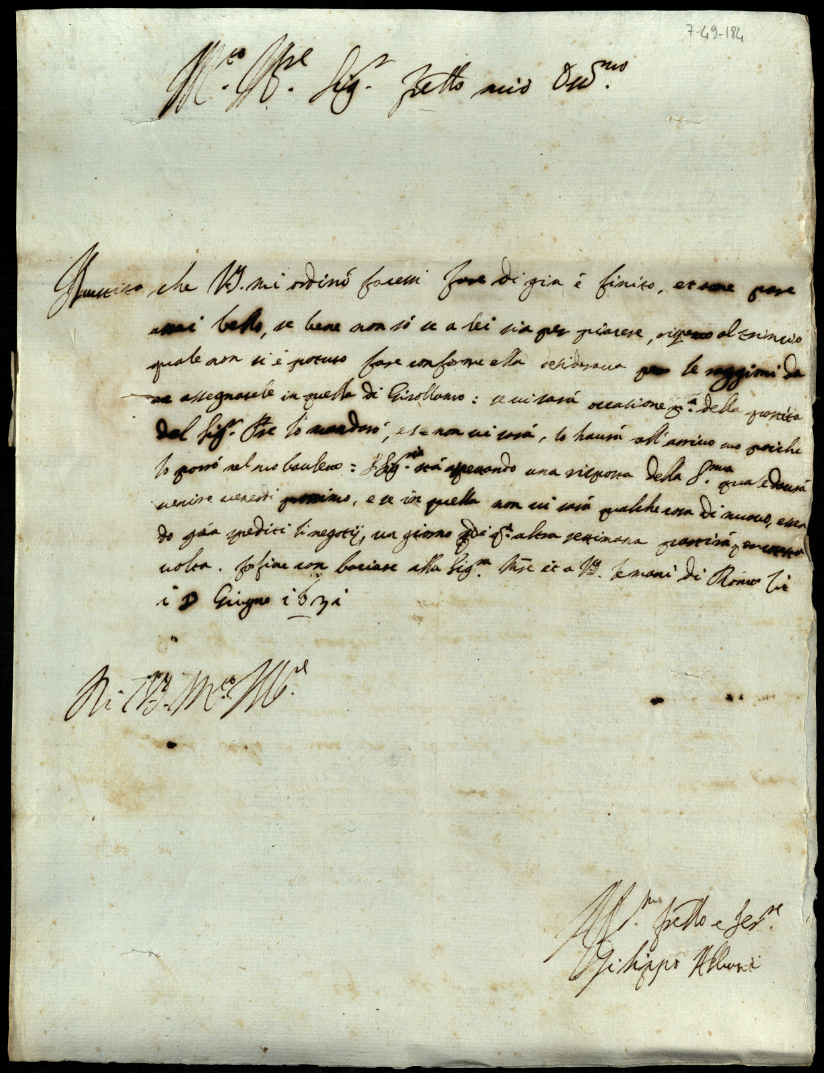 7-49-184
M.to Ill.re Sig.r fratello mio Oss.mo
che V.S. mi ordinò facessi fare di già è finito, et pare
assai bello, se bene non sò se a lei sia per piacere, rispetto al
quale non si è potuto fare conforme ella desiderava per le raggioni da
me assegnatele in quella di Girollamo: se vi sarà occasione p.a della partita
del Sig.r P.re lo manderò, e se non vi sarà, lo haurà all'arrivo suo poiche
lo porrò nel suo bauleto: stà aspettando una risposta della S.ma qual doverà
venire venerdì prossimo, e se in quella non vi sarà qualche cosa di nuovo, essen
do già spediti li negotij, un giorno di q.a altra settimana partirà
volta. Pos fine con baciare alla Sig.ra M.re et a V.S. le mani di Roma li
i Giugno 1631
Di V.S. M.to Ill.re
Aff.mo fratello e Ser.re
Filippo